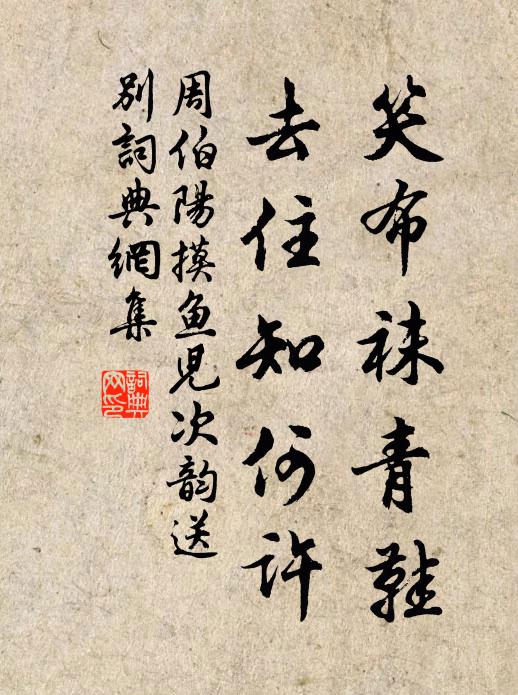 笑布袜青鞋
去住知何许
周伯陽摸鱼児次韵送
别詞典網集
詞典网印